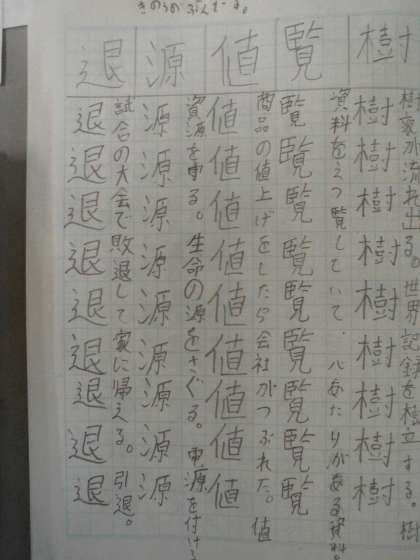 きのうのぶんでーす。
樹
樹樹樹樹樹樹樹樹樹
樹液が流れ出る。世界記録を樹立する。樹
覧
覧覧覧覧覧覧覧覧覧
資料をえつ覧していて、心あたりがある資料
値
値値値値値値値値値
商品の値上げをしたら会社がつぶれた。値
源
源源源源源源源源源
資源を守る。生命の源をさぐる。電源を付ける
退
退退退退退退退退退
試合の大会で敗退して家に帰える。引退。